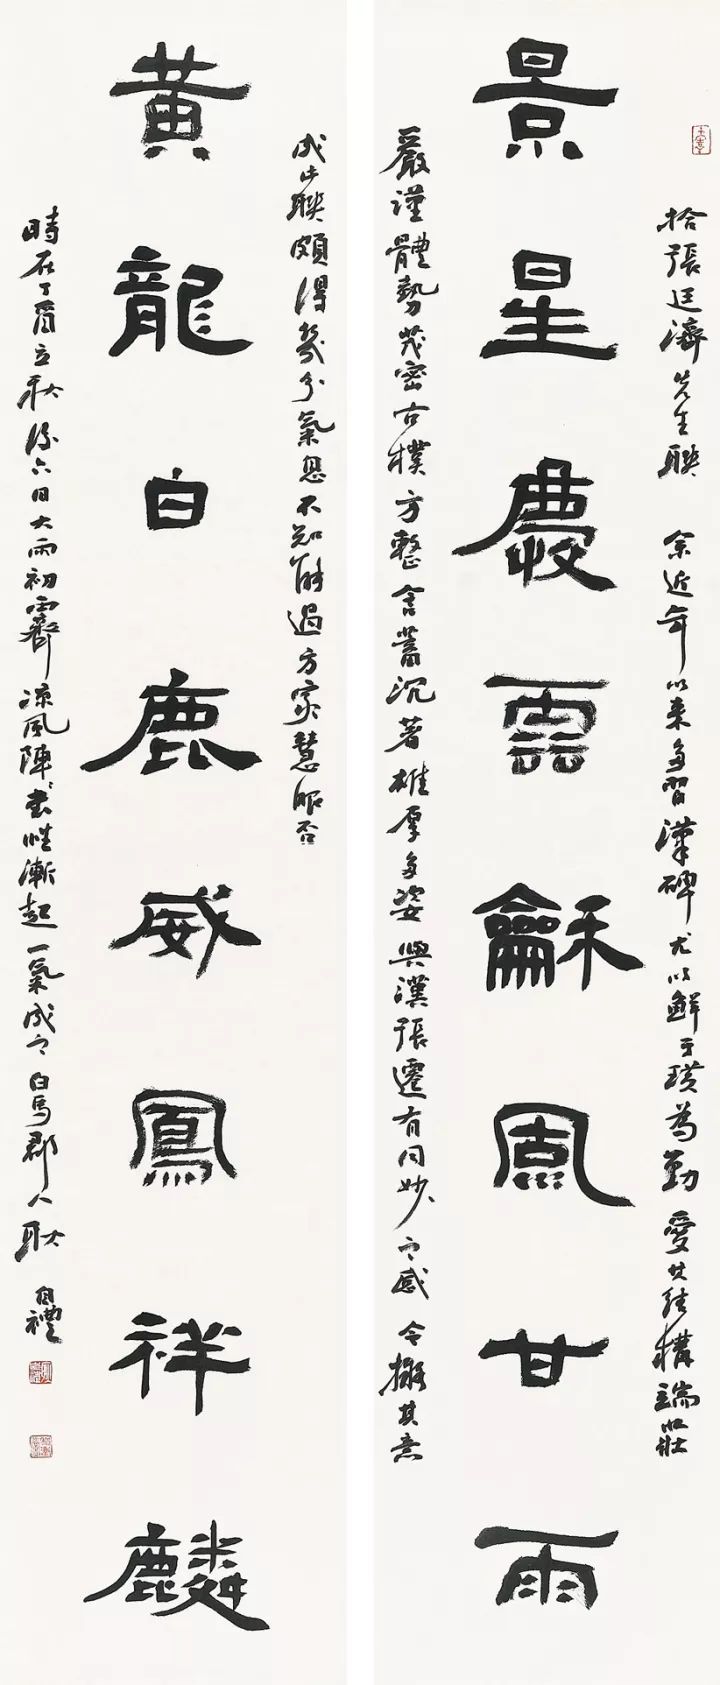 拾張廷濟先生聯 余近年以來多習漢碑尤以鮮于璜為勤 愛其結構端莊
景星慶雲龢風甘雨
嚴謹體勢茂密古樸方整含蓄沉著雄厚多姿與漢張遷有同妙之感 今擬其意
成此聯頗得幾分氣息不知能過方家慧眼否
黃龍白鹿威鳳祥麟
時在丁酉立秋後六日大雨初霽涼風陣〻書性漸起一氣成之 白馬郡人耿自禮